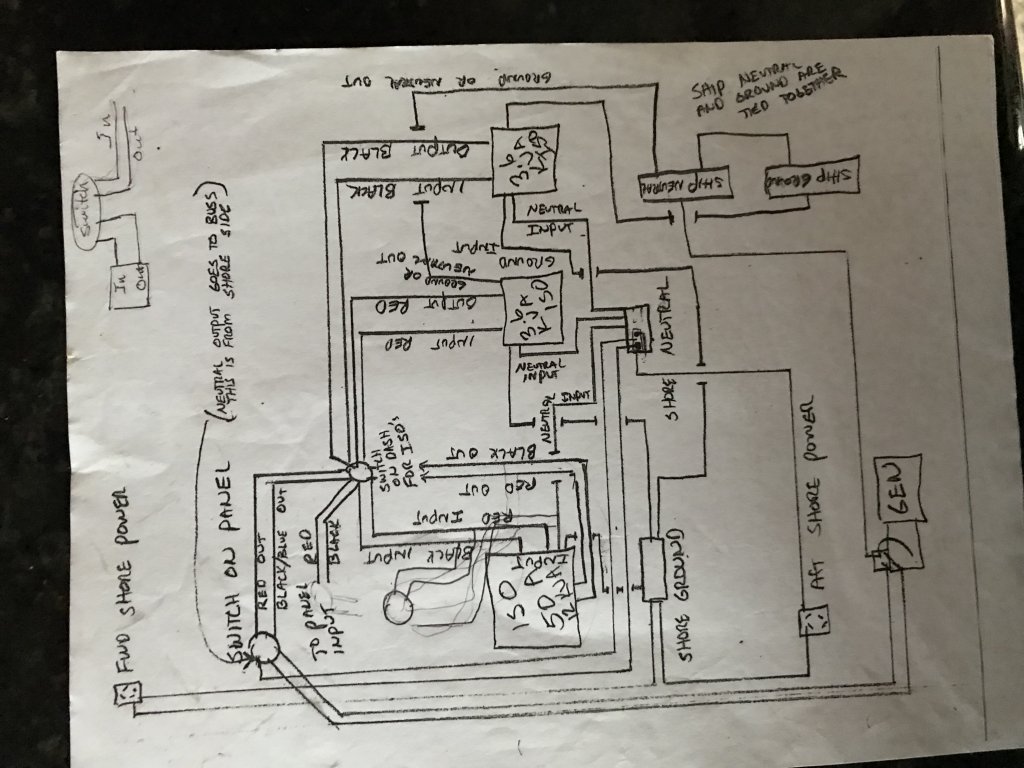 FWD SHORE POWER
SWITCH ON PANEL
(NEUTRAL OUTPUT GOES TO BUSS
THIS IS FROM SHORE SIDE)
Switch
In
Out
In
Out
RED OUT
BLACK/BLUE OUT
TO PANEL
INPUT
RED
BLACK
SWITCH
ON DASH
FOR ISO'S
BLACK INPUT
RED INPUT
RED OUT
BLACK OUT
ISO
INPUT RED
OUTPUT RED
INPUT BLACK
OUTPUT BLACK
GROUND OR
NEUTRAL OUT
GROUND OR NEUTRAL OUT
GROUND INPUT
NEUTRAL
INPUT
NEUTRAL
INPUT
NEUTRAL
INPUT
SHORE NEUTRAL
SHORE GROUND
SHIP NEUTRAL
SHIP GROUND
SHIP NEUTRAL
AND GROUND ARE
TIED TOGETHER
AFT SHORE POWER
GEN